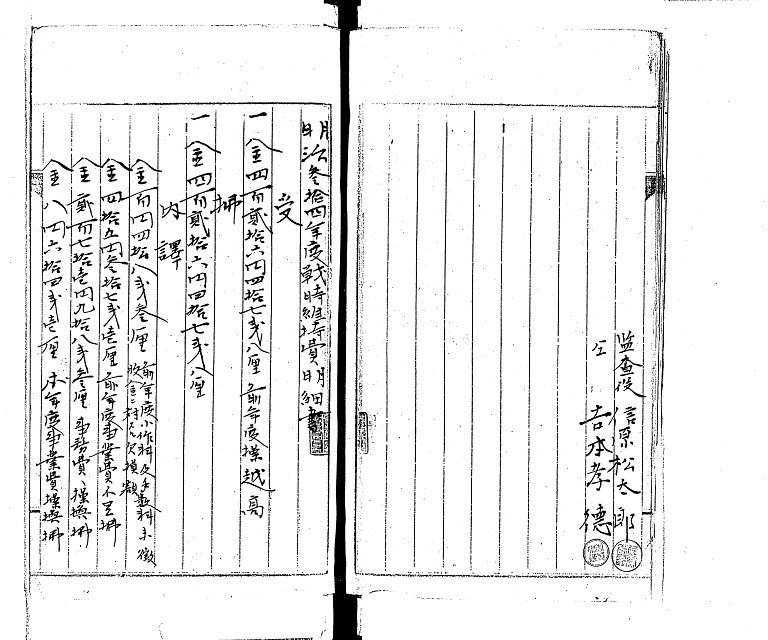 監査役 信原松太郎
仝 吉本孝徳
明治参拾四年度戦時維持費明細書
受
一 金四百貳拾六円四拾七戋八厘 前年度操越高
拂
一 金四百貳拾六円四拾七戋八厘
内譯
金百四円四拾八戋参厘 前年度小作料及手數料未徴
收金ニ対スル欠損額
金四拾五円参拾七戋壱厘 前年度事業費不足拂
金貳百七拾壱円九拾八戋参厘 事務費ヘ操換拂
金八円六拾四戋壱厘 本年度事業費操換拂